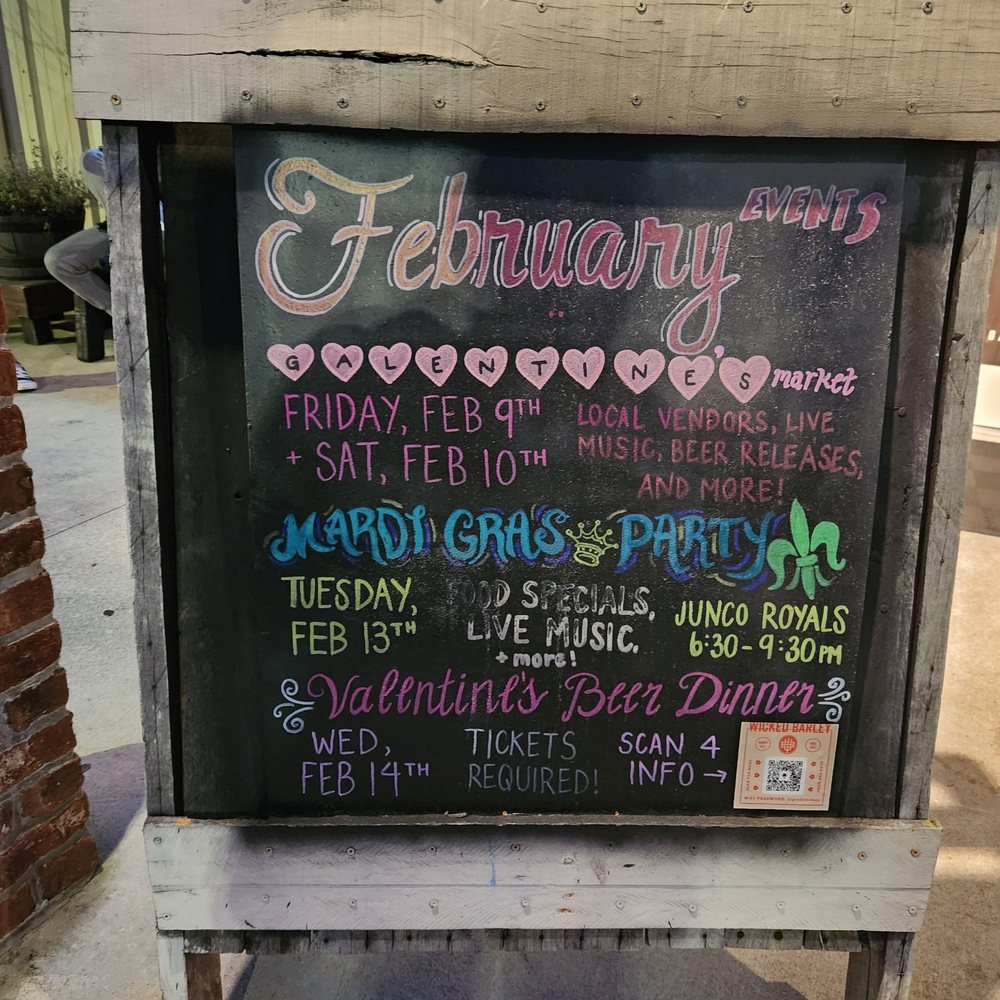 February EVENTS
GALENTINE'S market
FRIDAY, FEB 9TH
+ SAT, FEB 10TH
LOCAL VENDORS, LIVE
MUSIC, BEER RELEASES,
AND MORE!
MARDI GRAS PARTY
TUESDAY,
FEB 13TH
FOOD SPECIALS,
LIVE MUSIC,
+ more!
JUNCO ROYALS
6:30-9:30PM
Valentine's Beer Dinner
WED,
FEB 14TH
TICKETS
REQUIRED!
SCAN 4
INFO →
WICKED BARLEY
WIFI PASSWORD: